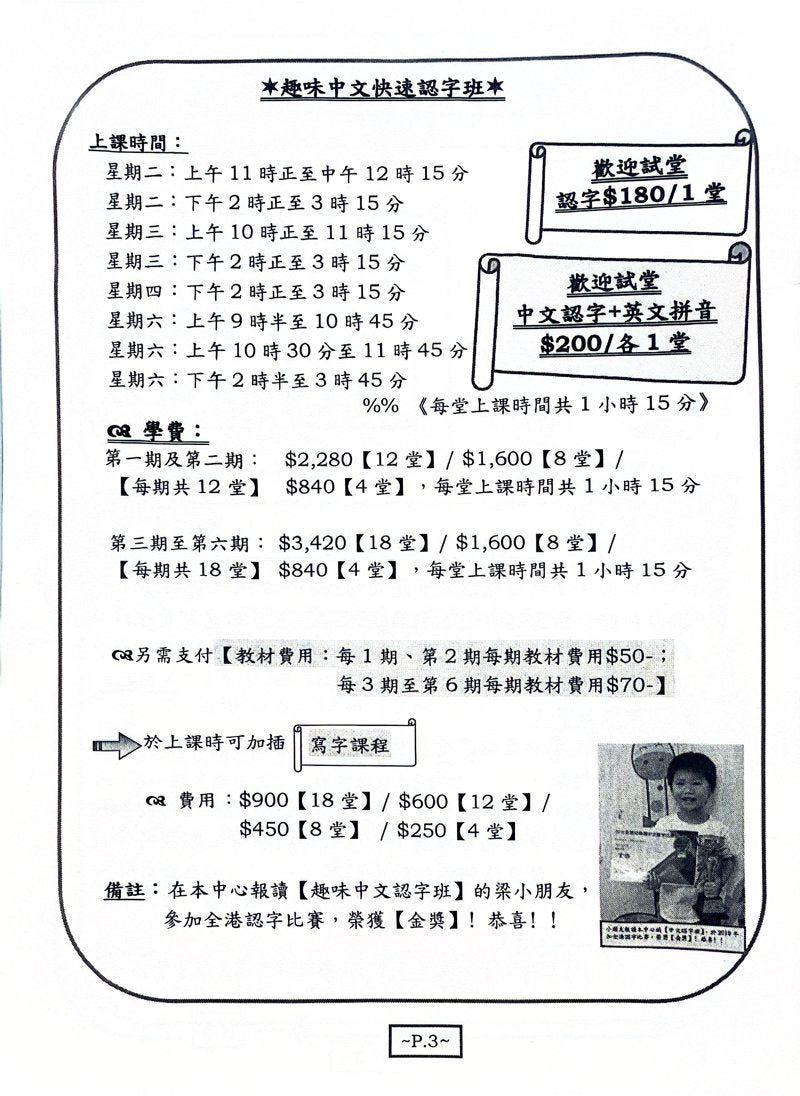 ✶趣味中文快速認字班✶
上課時間：
星期二：上午 11 時正至中午 12 時 15 分
星期二：下午 2 時正至 3 時 15 分
星期三：上午 10 時正至 11 時 15 分
星期三：下午 2 時正至 3 時 15 分
星期四：下午 2 時正至 3 時 15 分
星期六：上午 9 時半至 10 時 45 分
星期六：上午 10 時 30 分至 11 時 45 分
星期六：下午 2 時半至 3 時 45 分
歡迎試堂
認字$180/1 堂
歡迎試堂
中文認字+英文拼音
$200/各 1 堂
%% 《每堂上課時間共 1 小時 15 分》
學費：
第一期及第二期： $2,280【12 堂】/ $1,600【8 堂】/
【每期共 12 堂】 $840【4 堂】，每堂上課時間共 1 小時 15 分
第三期至第六期： $3,420【18 堂】/ $1,600【8 堂】/
【每期共 18 堂】 $840【4 堂】，每堂上課時間共 1 小時 15 分
另需支付【教材費用：每 1 期、第 2 期每期教材費用$50-；
每 3 期至第 6 期每期教材費用$70-】
於上課時可加插 寫字課程
費用：$900【18 堂】/ $600【12 堂】/
$450【8 堂】 / $250【4 堂】
備註：在本中心報讀【趣味中文認字班】的梁小朋友，
參加全港認字比賽，榮獲【金獎】！恭喜！！
~P.3~